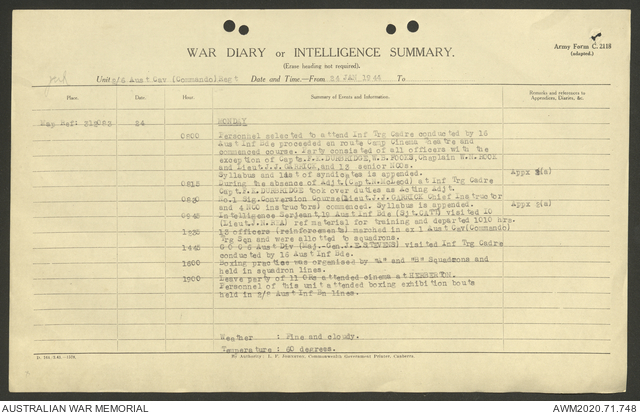 Army Form C. 2118
(adapted.)
WAR DIARY or INTELLIGENCE SUMMARY.
(Erase heading not required).
Unit 2/6 Aust Cav (Commando) Regt Date and Time.—From 24 JAN 1944 To
Place. Date. Hour. Summary of Events and Information. Remarks and references to Appendices, Diaries, &c.
Map Ref: 24 MONDAY
0800 Personnel selected to attend Inf Trg Cadre conducted by 16
Aust Inf Bde proceeded en route Camp Cinema Theatre and
commenced course. Party consisted of all officers with the
exception of Capts. F.R. BURBRIDGE, W.B. FOOKS, Chaplain W.R. ROOK
and Lieut. J.J. GARRICK, and 13 senior NCOs.
Syllabus and list of syndicates is appended. Appx (a)
0815 During the absence of Adjt (Capt. N. McLeod) at Inf Trg Cadre
Capt. F.R. BURBRIDGE took over duties as Acting Adjt.
0830 No.1 Sig. Conversion Course (Lieut. J.J. GARRICK Chief Instructor
and 4 NCO instructors) commenced. Syllabus is appended. Appx (a)
0945 Intelligence Serjeant, 19 Aust Inf Bde (Sjt. CATT) visited IO
(Lieut. J.N. REA) ref material for training and departed 1010 hrs.
1430 13 officers (reinforcements) marched in ex 1 Aust Cav (Commando)
Trg Sqn and were allotted to squadrons.
1445 G O C 6 Aust Div (Maj.-Gen. J.E. STEVENS) visited Inf Trg Cadre
conducted by 16 Aust Inf Bde.
1600 Boxing practice was organised by "A" and "B" Squadrons and
held in squadron lines.
1900 Leave party of 11 ORs attended cinema at HERBERTON.
Personnel of this unit attended boxing exhibition bouts
held in Aust Inf Bn lines.
Weather : Fine and cloudy.
Temperature : 80 degrees.
By Authority: L. F. Johnston, Commonwealth Government Printer, Canberra.
AUSTRALIAN WAR MEMORIAL
AWM2020.71.748